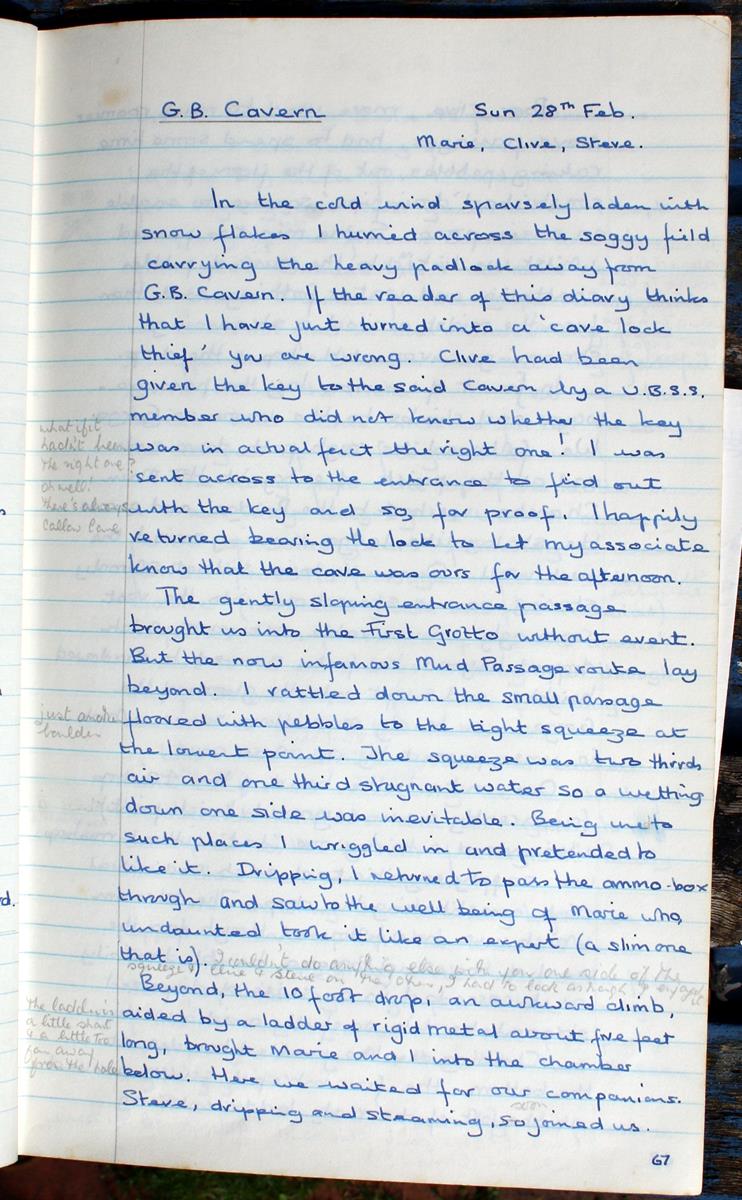 G.B. Cavern Sun 28th Feb.
Marie, Clive, Steve.
In the cold wind sparsely laden with
snow flakes I hurried across the soggy field
carrying the heavy padlock away from
G.B. Cavern. If the reader of this diary thinks
that I have just turned into a 'cave lock
thief' you are wrong. Clive had been
given the key to the said Cavern by a U.B.S.S.
member who did not know whether the key
was in actual fact the right one! I was
sent across to the entrance to find out
with the key and so, for proof. I happily
returned bearing the lock to let my associate
know that the cave was ours for the afternoon.
what if it
hadn't been
the right one?
oh well!
there's always
Callow Cave
The gently sloping entrance passage
brought us into the First Grotto without event.
But the now infamous Mud Passage route lay
beyond. I rattled down the small passage
floored with pebbles to the tight squeeze at
the lowest point. The squeeze was two thirds
air and one third stagnant water so a wetting
down one side was inevitable. Being to
such places I wriggled in and pretended to
like it. Dripping, I returned to pass the ammo-box
through and saw to the well being of Marie who,
undaunted took it like an expert (a slim one
that is). I couldn't do anything else with you one side of the
squeeze & Clive & Steve on the other, I had to look as though I enjoyed it
just
boulder
Beyond, the 10 foot drop, an awkward climb,
aided by a ladder of rigid metal about five feet
long, brought Marie and I into the chamber
below. Here we waited for our companions.
Steve, dripping and steaming, so joined us.
soon
the ladder is
a little short
& a little too
far away
from the hole
67